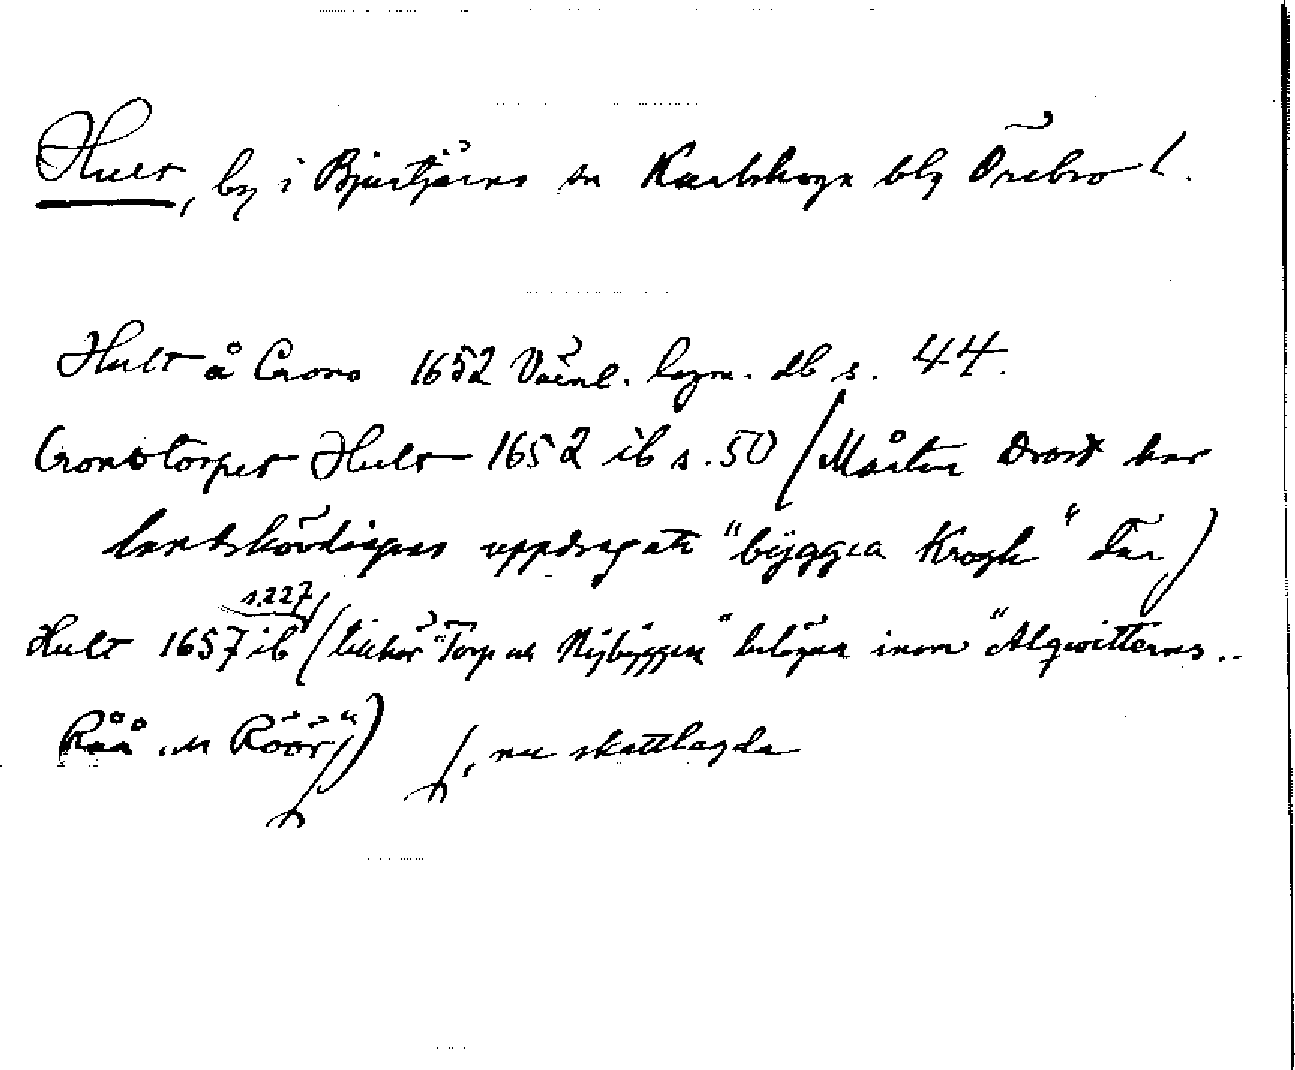 Hult, by i Bjurtjärns sn Karlskoga blg Örebro l.
Hult å Crono 1652 Värml. lagm. db s. 44.
Cronotorpet Hult 1652 ib s. 50 (Mårten Drost har
landshövdingens uppdrag att "byggia Krogh" där)
s. 227
Hult 1657 ib (tillhör "Torp och Nybyggen" belägna inom "Alqwitterns ..
Råå och Röör") , nu skattlagda